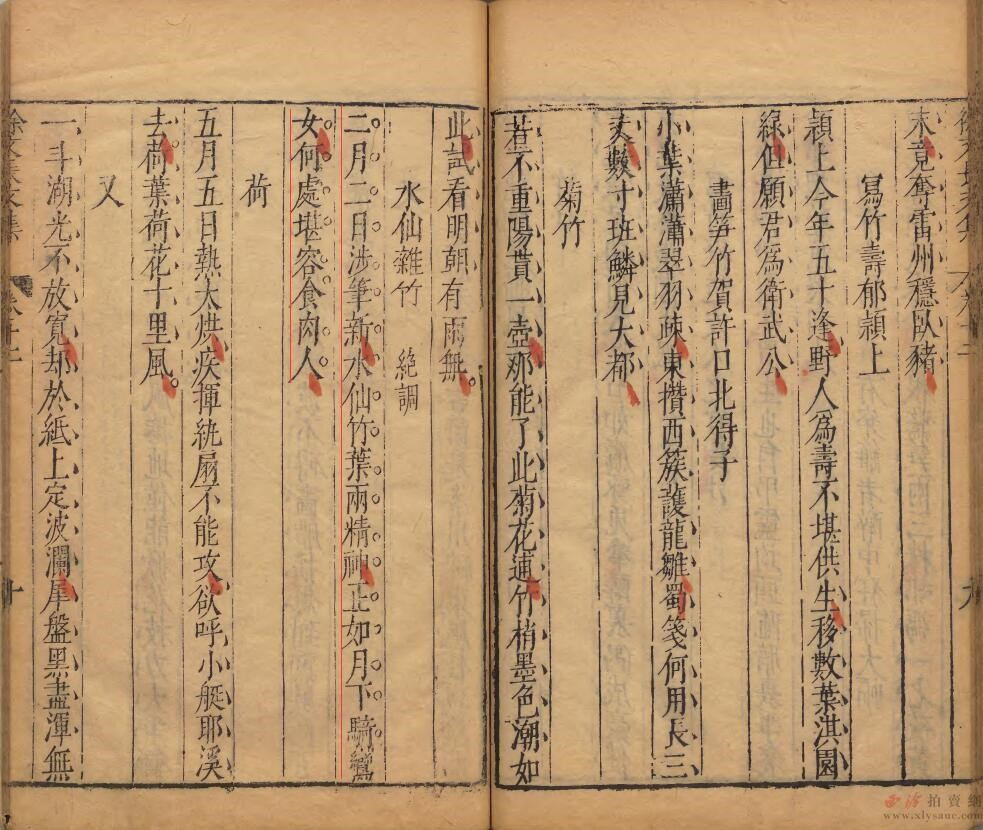 末竟奪雷州穩臥豬
寫竹壽郁潁上
潁上今年五十逢野人為壽不堪供生移數葉淇園
綠但願君為衛武公
畫笋竹賀許口北得子
小葉瀟瀟翠羽疎東攢西簇護龍雛蜀箋何用長三
丈數寸班鱗見大都
菊竹
若不重陽貰一壺那能了此菊花逋竹梢墨色潮如
此試看明朝有雨無
水仙雜竹 絶調
二月二日涉筆新水仙竹葉兩精神正如月下騎鸞
女何處堪容食肉人
荷
五月五日熱太烘疾揮紈扇不能攻欲呼小艇耶溪
去荷葉荷花十里風
又
一斗湖光不放寬却於紙上定波瀾犀盤黑盡渾無
徐文長文集 卷十二 十
九
西泠拍賣網
www.xlysauc.com